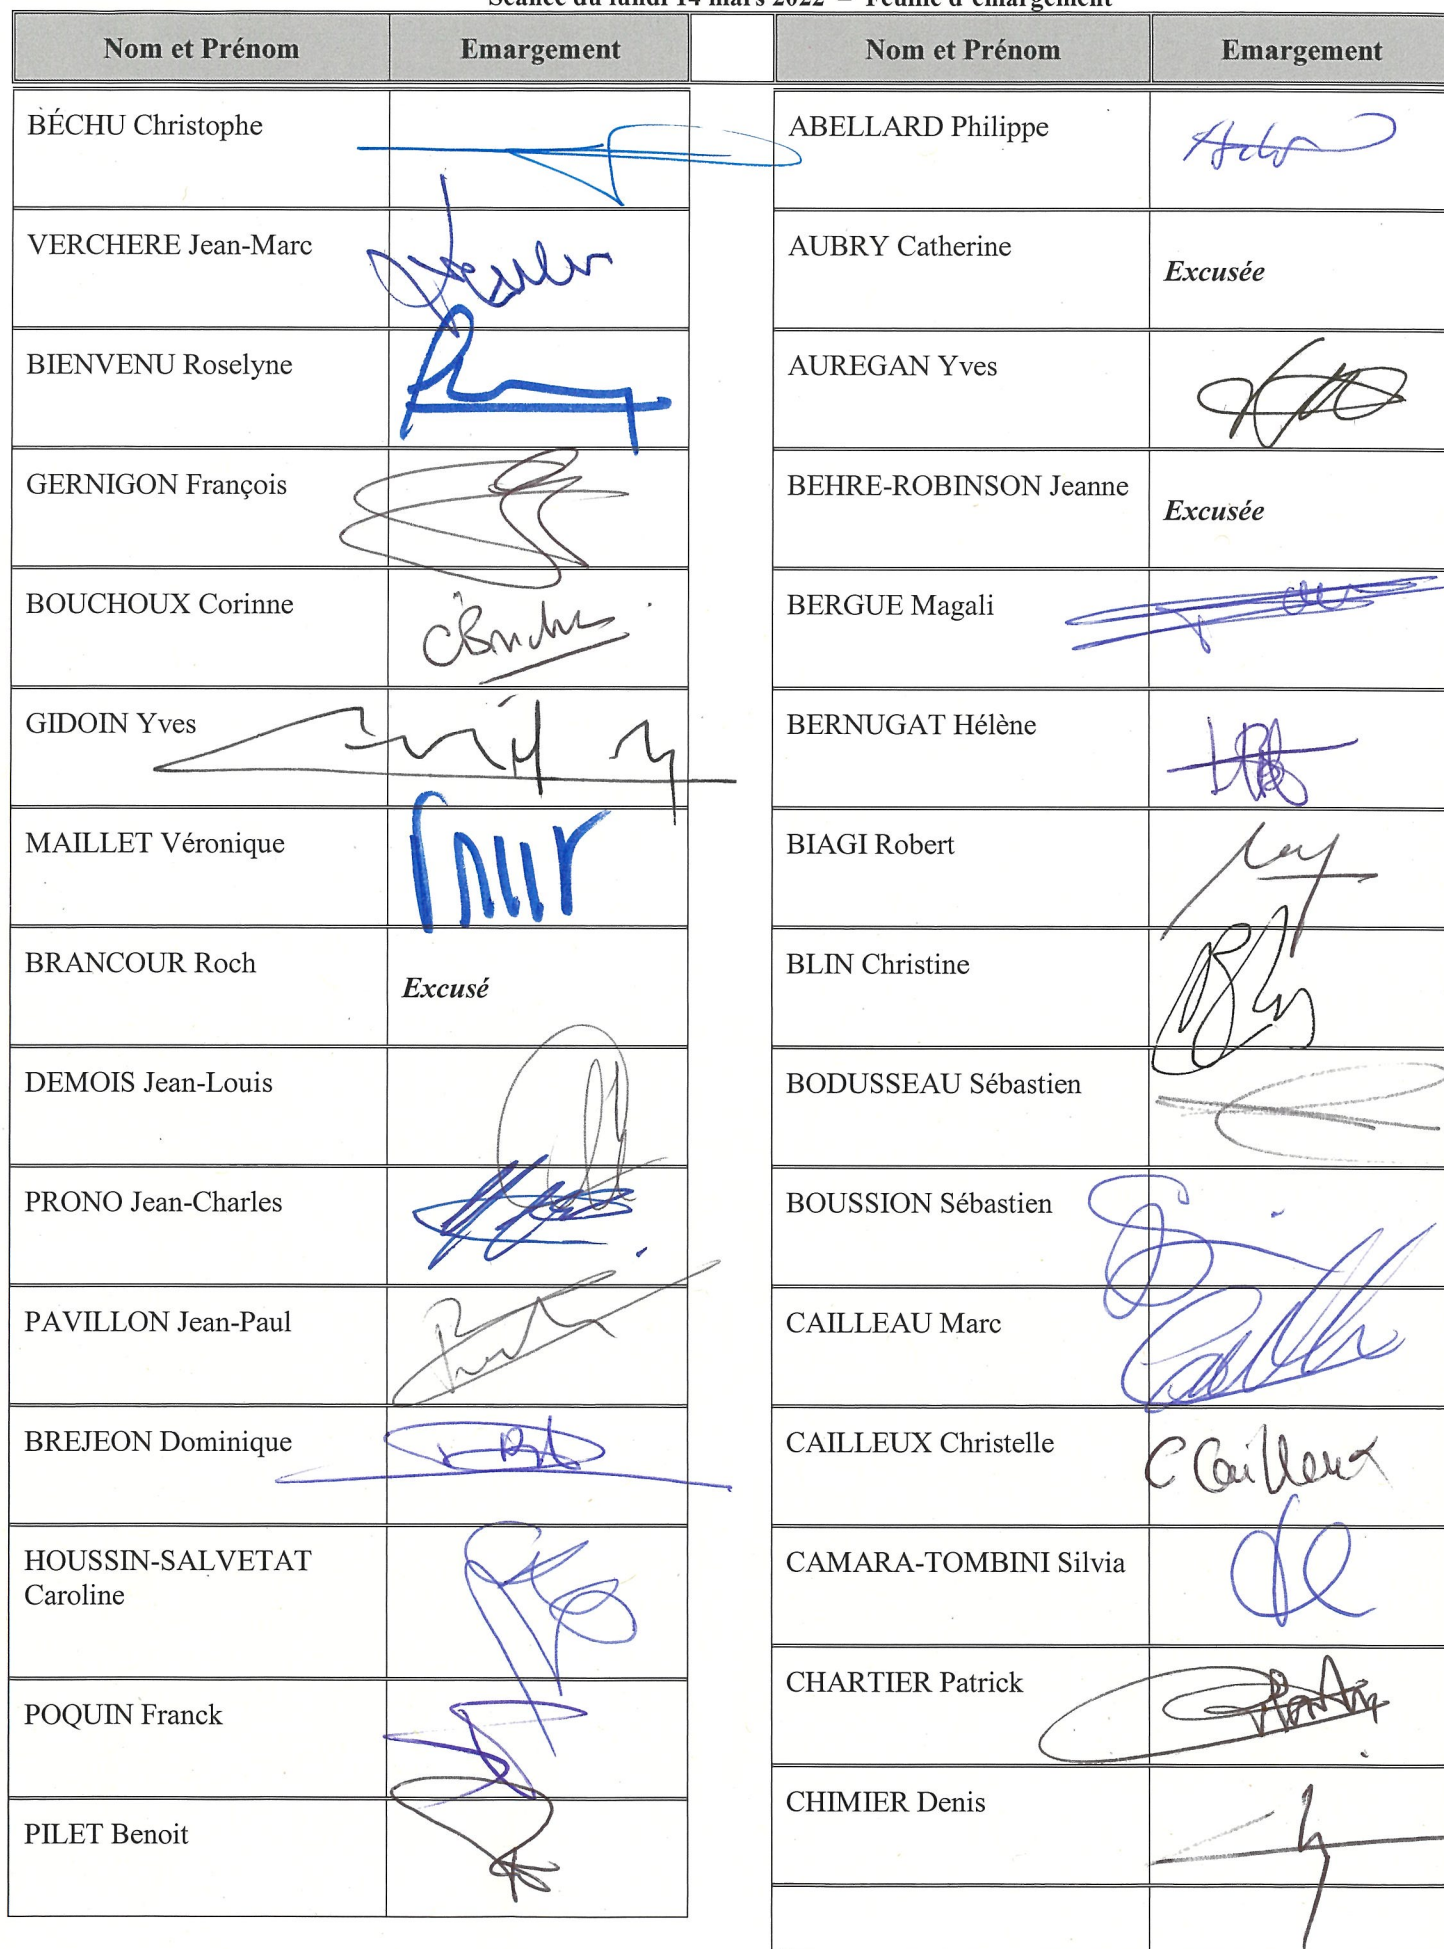 Séance du lundi 14 mars 2022 – Feuille d'émargement
Nom et Prénom Emargement
BÉCHU Christophe
VERCHERE Jean-Marc
BIENVENU Roselyne
GERNIGON François
BOUCHOUX Corinne
GIDOIN Yves
MAILLET Véronique
BRANCOUR Roch Excusé
DEMOIS Jean-Louis
PRONO Jean-Charles
PAVILLON Jean-Paul
BREJEON Dominique
HOUSSIN-SALVETAT
Caroline
POQUIN Franck
PILET Benoit
Nom et Prénom Emargement
ABELLARD Philippe
AUBRY Catherine Excusée
AUREGAN Yves
BEHRE-ROBINSON Jeanne Excusée
BERGUE Magali
BERNUGAT Hélène
BIAGI Robert
BLIN Christine
BODUSSEAU Sébastien
BOUSSION Sébastien
CAILLEAU Marc
CAILLEUX Christelle C Cailleux
CAMARA-TOMBINI Silvia
CHARTIER Patrick
CHIMIER Denis